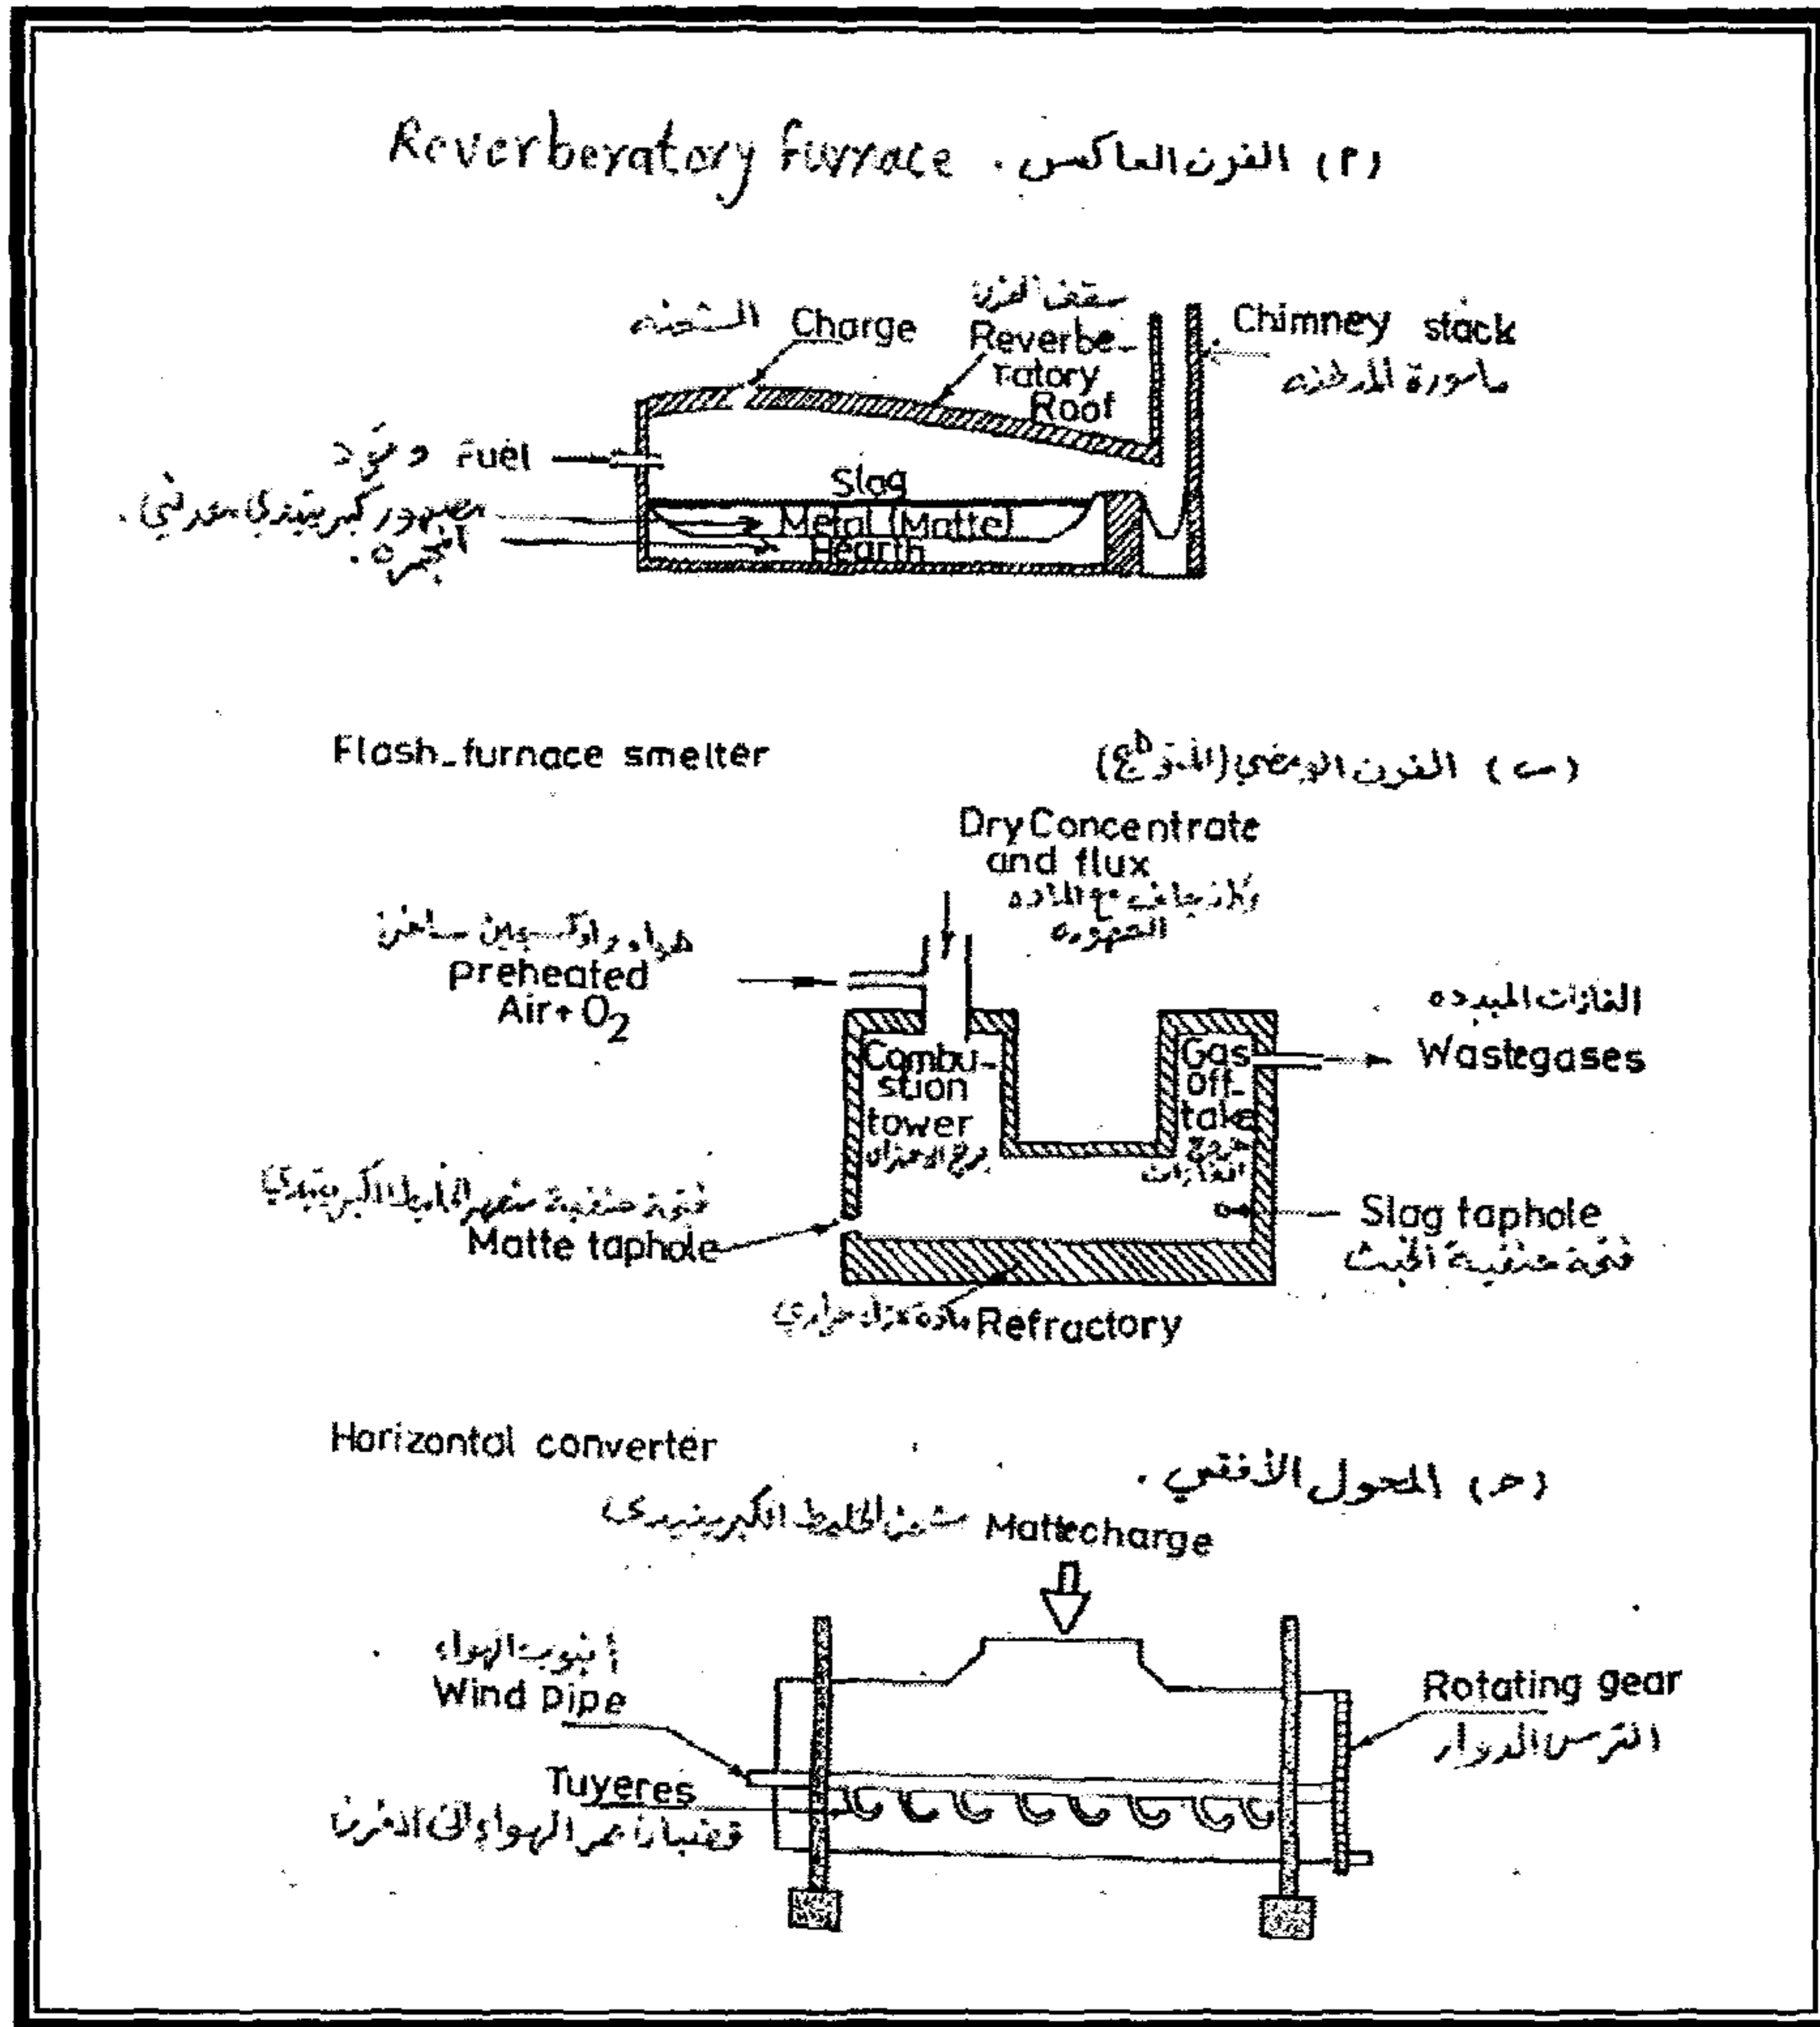 Reverberatory furnace . (P) الفرن العاكس
سقف الفرن
الشحنه Charge
Reverbe-
ratory
Roof
Chimney stack
ماسورة المدخنه
وقود Fuel
Slag
مصهور كبريتيدي معدني .
Metal (Matte)
Hearth
المجمره .
Flash-furnace smelter
(ب) الفرن الومضي
Dry Concentrate
and flux
جاف مع الماده
الصهوره
هواء واوكسجين ساخن
preheated
Air + O2
الغازات المبدده
Wastegases
Combu-
stion
tower
برج الاحتراق
Gas
off-
take
خروج
الغازات
فتحة حنفية الكبريتيدي
Matte taphole
Slag taphole
فتحة حنفية الخبث
مادة عزل حراري Refractory
Horizontal converter
(حـ) المحول الأفقي .
شحن الخليط الكبريتيدي Mattecharge
أنبوب الهواء
Wind pipe
Rotating gear
الترس الدوار
Tuyeres
الهواء الى الفرن